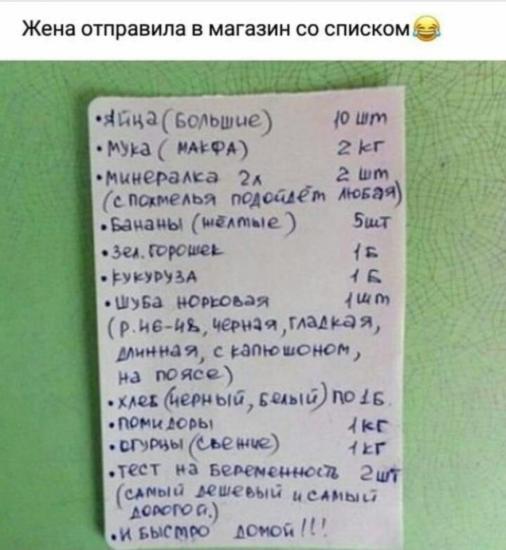 Жена отправила в магазин со списком😂
•Яйца (Большие) 10 шт
•Мука (МАКФА) 2 кг
•минералка 2л 2 шт
(с похмелья подойдёт любая)
•Бананы (жёлтые) 5шт
•Зел. горошек 1Б
•кукуруза 1Б
•Шуба норковая 1шт
(р.46-48, чёрная, гладкая,
длинная, с капюшоном,
на поясе)
•хлеб (черный, белый) по 1Б.
•помидоры 1кг
•огурцы (свежие) 1кг
•тест на беременность 2шт
(самый дешевый и самый
дорогой.)
•и быстро домой!!!